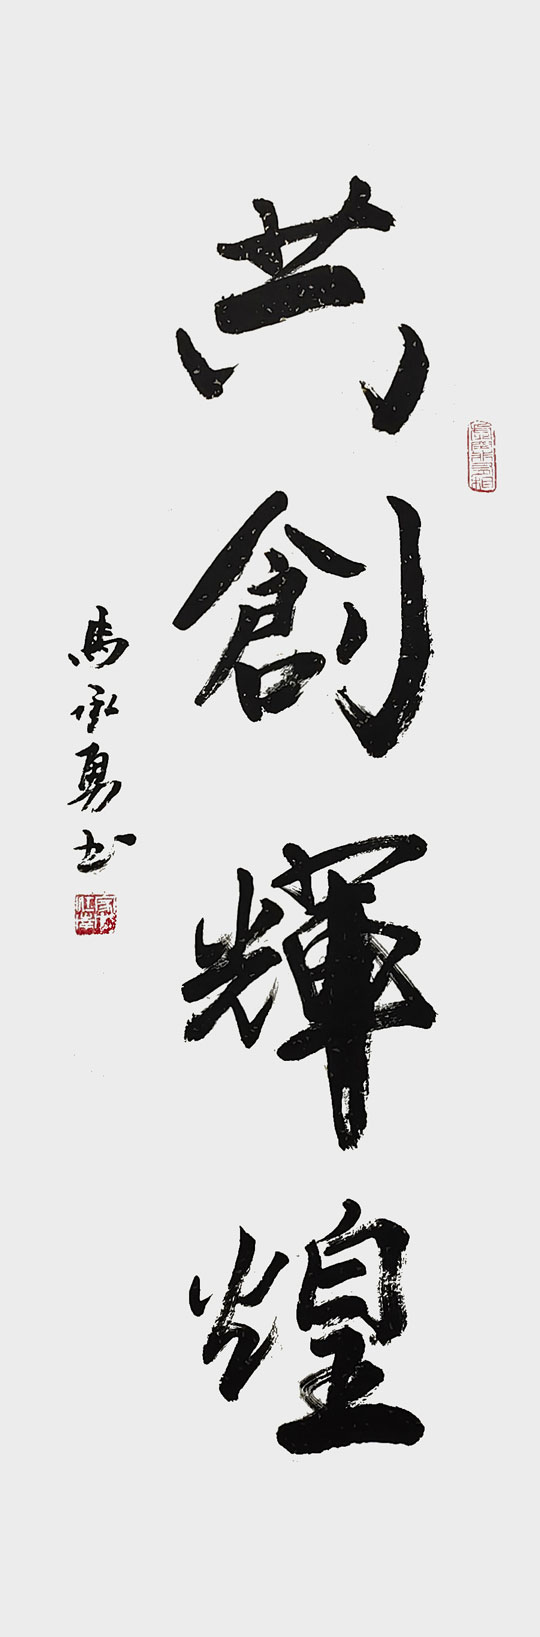 共創輝煌
馬承勇书